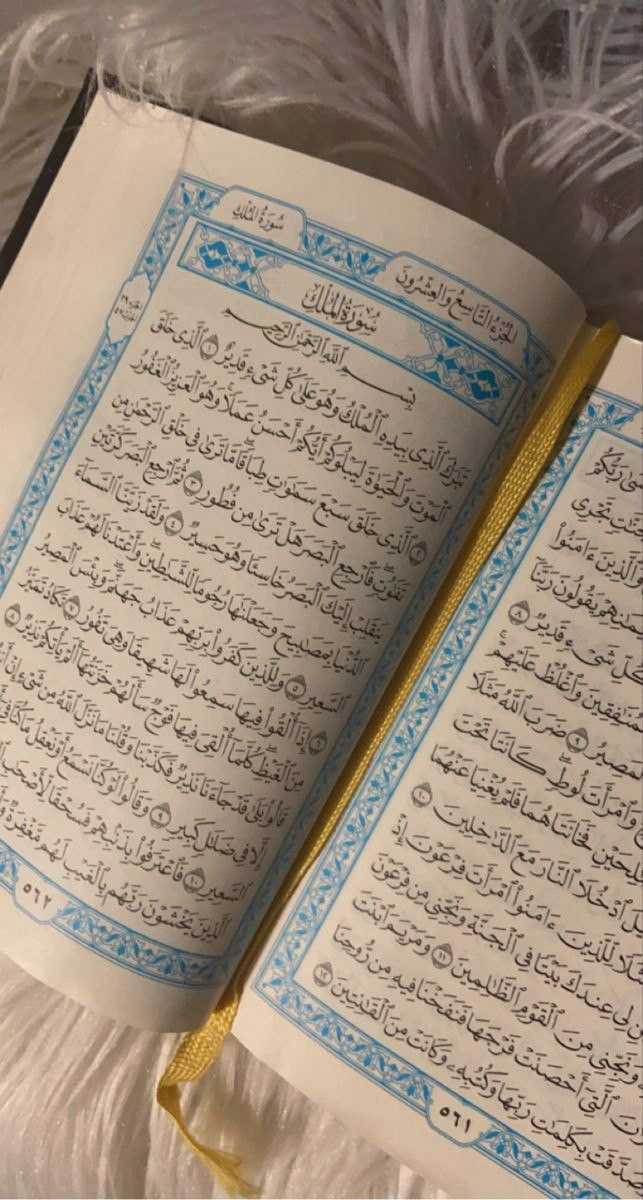 رَبُّكُمْ
تَجْرِى
وَٱلَّذِينَ ءَامَنُوا۟
يَقُولُونَ رَبَّنَآ
كُلِّ شَىْءٍ قَدِيرٌ ٨
وَٱغْلُظْ عَلَيْهِمْ
ٱلْمَصِيرُ ٩ ضَرَبَ ٱللَّهُ مَثَلًا
وَٱمْرَأَتَ لُوطٍ كَانَتَا تَحْتَ
فَخَانَتَاهُمَا فَلَمْ يُغْنِيَا عَنْهُمَا
ٱدْخُلَا ٱلنَّارَ مَعَ ٱلدَّٰخِلِينَ ١٠
لِّلَّذِينَ ءَامَنُوا۟ ٱمْرَأَتَ فِرْعَوْنَ إِذْ
لِى عِندَكَ بَيْتًا فِى ٱلْجَنَّةِ وَنَجِّنِى مِن فِرْعَوْنَ
وَنَجِّنِى مِنَ ٱلْقَوْمِ ٱلظَّٰلِمِينَ ١١ وَمَرْيَمَ ٱبْنَتَ
ٱلَّتِىٓ أَحْصَنَتْ فَرْجَهَا فَنَفَخْنَا فِيهِ مِن رُّوحِنَا
وَصَدَّقَتْ بِكَلِمَٰتِ رَبِّهَا وَكُتُبِهِۦ وَكَانَتْ مِنَ ٱلْقَٰنِتِينَ ١٢
٥٦١
الجُزْءُ التَّاسِعُ وَالعِشْرُونَ
سُورَةُ المُلْكِ
سُورَةُ المُلْكِ
بِسْمِ ٱللَّهِ ٱلرَّحْمَٰنِ ٱلرَّحِيمِ
تَبَٰرَكَ ٱلَّذِى بِيَدِهِ ٱلْمُلْكُ وَهُوَ عَلَىٰ كُلِّ شَىْءٍ قَدِيرٌ ١ ٱلَّذِى خَلَقَ
ٱلْمَوْتَ وَٱلْحَيَوٰةَ لِيَبْلُوَكُمْ أَيُّكُمْ أَحْسَنُ عَمَلًا وَهُوَ ٱلْعَزِيزُ ٱلْغَفُورُ
٢ ٱلَّذِى خَلَقَ سَبْعَ سَمَٰوَٰتٍ طِبَاقًا مَّا تَرَىٰ فِى خَلْقِ ٱلرَّحْمَٰنِ مِن
تَفَٰوُتٍ فَٱرْجِعِ ٱلْبَصَرَ هَلْ تَرَىٰ مِن فُطُورٍ ٣ ثُمَّ ٱرْجِعِ ٱلْبَصَرَ كَرَّتَيْنِ
يَنقَلِبْ إِلَيْكَ ٱلْبَصَرُ خَاسِئًا وَهُوَ حَسِيرٌ ٤ وَلَقَدْ زَيَّنَّا ٱلسَّمَآءَ
ٱلدُّنْيَا بِمَصَٰبِيحَ وَجَعَلْنَٰهَا رُجُومًا لِّلشَّيَٰطِينِ وَأَعْتَدْنَا لَهُمْ عَذَابَ
ٱلسَّعِيرِ ٥ وَلِلَّذِينَ كَفَرُوا۟ بِرَبِّهِمْ عَذَابُ جَهَنَّمَ وَبِئْسَ ٱلْمَصِيرُ
٦ إِذَآ أُلْقُوا۟ فِيهَا سَمِعُوا۟ لَهَا شَهِيقًا وَهِىَ تَفُورُ ٧ تَكَادُ تَمَيَّزُ
مِنَ ٱلْغَيْظِ كُلَّمَآ أُلْقِىَ فِيهَا فَوْجٌ سَأَلَهُمْ خَزَنَتُهَآ أَلَمْ يَأْتِكُمْ نَذِيرٌ ٨
قَالُوا۟ بَلَىٰ قَدْ جَآءَنَا نَذِيرٌ فَكَذَّبْنَا وَقُلْنَا مَا نَزَّلَ ٱللَّهُ مِن شَىْءٍ إِنْ أَنتُمْ
إِلَّا فِى ضَلَٰلٍ كَبِيرٍ ٩ وَقَالُوا۟ لَوْ كُنَّا نَسْمَعُ أَوْ نَعْقِلُ مَا كُنَّا فِىٓ
ٱلسَّعِيرِ ١٠ فَٱعْتَرَفُوا۟ بِذَنۢبِهِمْ فَسُحْقًا لِّأَصْحَٰبِ
ٱلَّذِينَ يَخْشَوْنَ رَبَّهُم بِٱلْغَيْبِ لَهُم مَّغْفِرَةٌ
٥٦٢